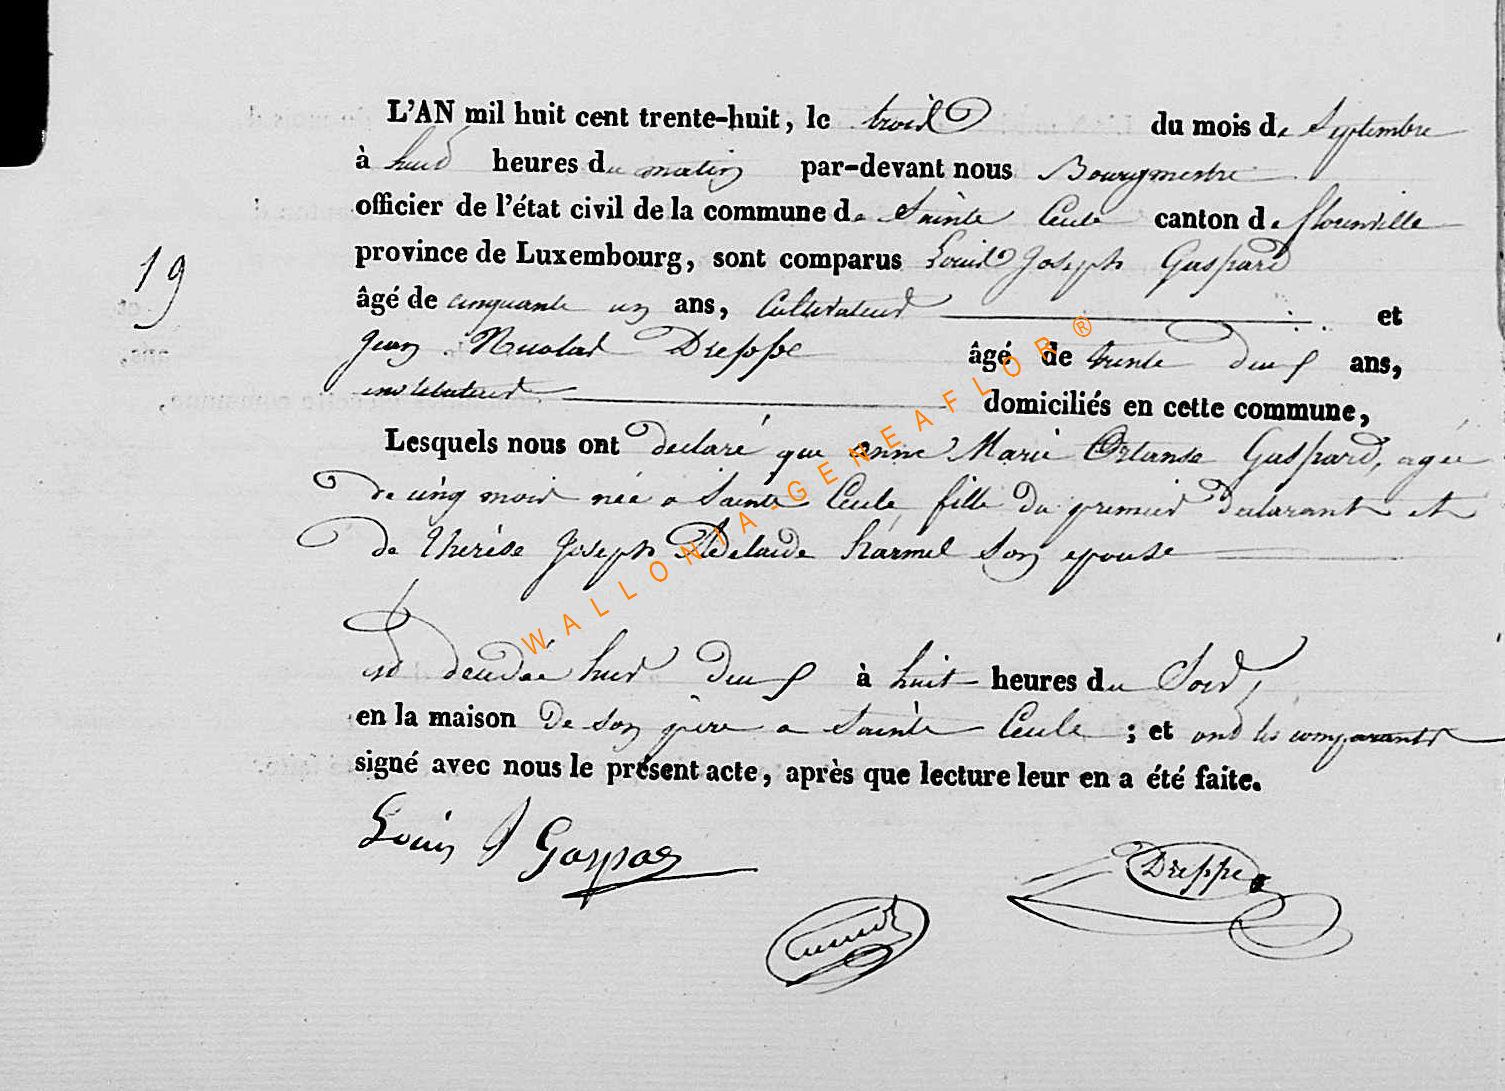 L'AN mil huit cent trente-huit, le trois du mois de Septembre
à huit heures du matin par-devant nous Bourgmestre
officier de l'état civil de la commune de Sainte Cécile canton de florenville
province de Luxembourg, sont comparus Louis Joseph Gaspard
19
âgé de cinquante un ans, Cultivateur et
Jean Nicolas Dreppe âgé de trente deux ans,
instituteur domiciliés en cette commune,
Lesquels nous ont declaré que anne Marie Ortanse Gaspard, agée
de cinq mois née a Sainte Cécile, fille du premier declarant et
de Thérèse Joseph Adelaide harmel son epouse
est deudée hier deux à huit heures du Soir,
en la maison de son père a Sainte Cécile ; et ont les comparants
signé avec nous le présent acte, après que lecture leur en a été faite.
Louis J Gaspar
Dreppe
WALLONIA-GENEAFLOR ®